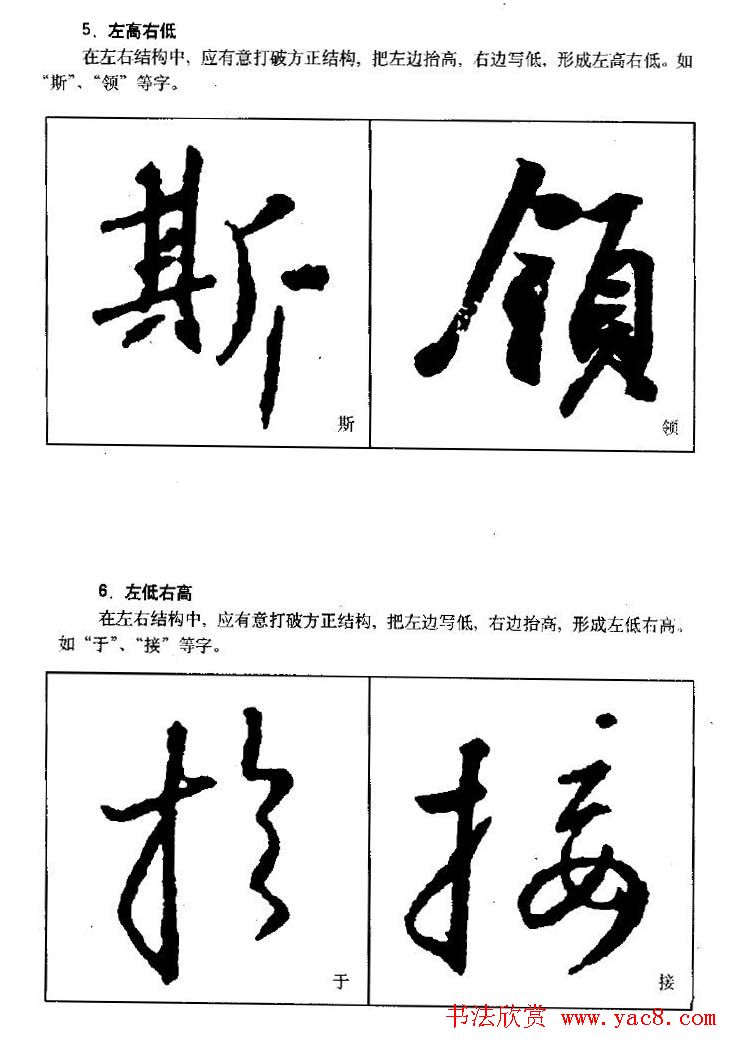 5．左高右低
在左右结构中，应有意打破方正结构，把左边抬高，右边写低，形成左高右低。如
“斯”、“领”等字。
斯 領
斯 领
6．左低右高
在左右结构中，应有意打破方正结构，把左边写低，右边抬高，形成左低右高。
如“于”、“接”等字。
於 接
于 接
书法欣赏 www.yac8.com